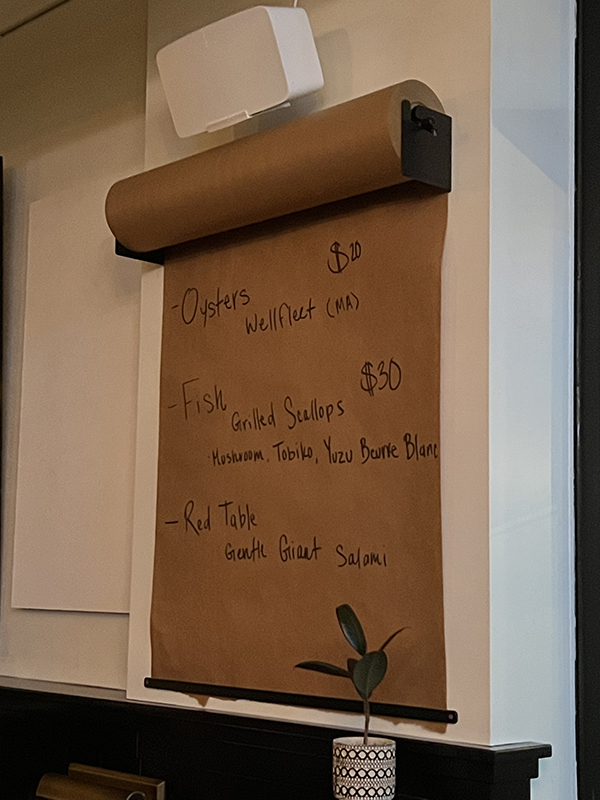 $20
-Oysters
Wellfleet (MA)
$30
-Fish
Grilled Scallops
·Mushroom, Tobiko, Yuzu Beurre Blanc
-Red Table
Gentle Giant Salami